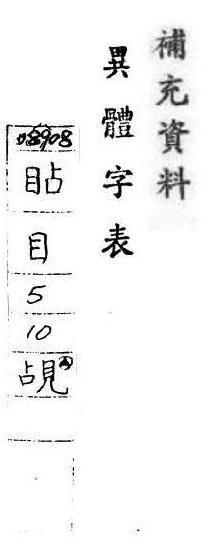 補充資料
異體字表
08908
眙
目
5
10
覘